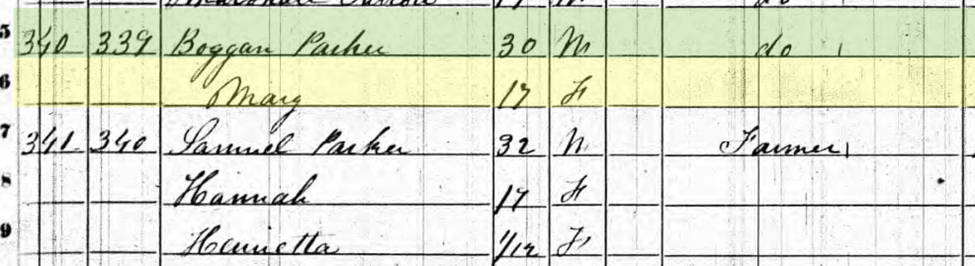 do
5 340 339 Boggan Parker 30 M do
6 Mary 17 F
7 341 340 Samuel Parker 32 M Farmer
8 Hannah 17 F
9 Henrietta 1/12 F